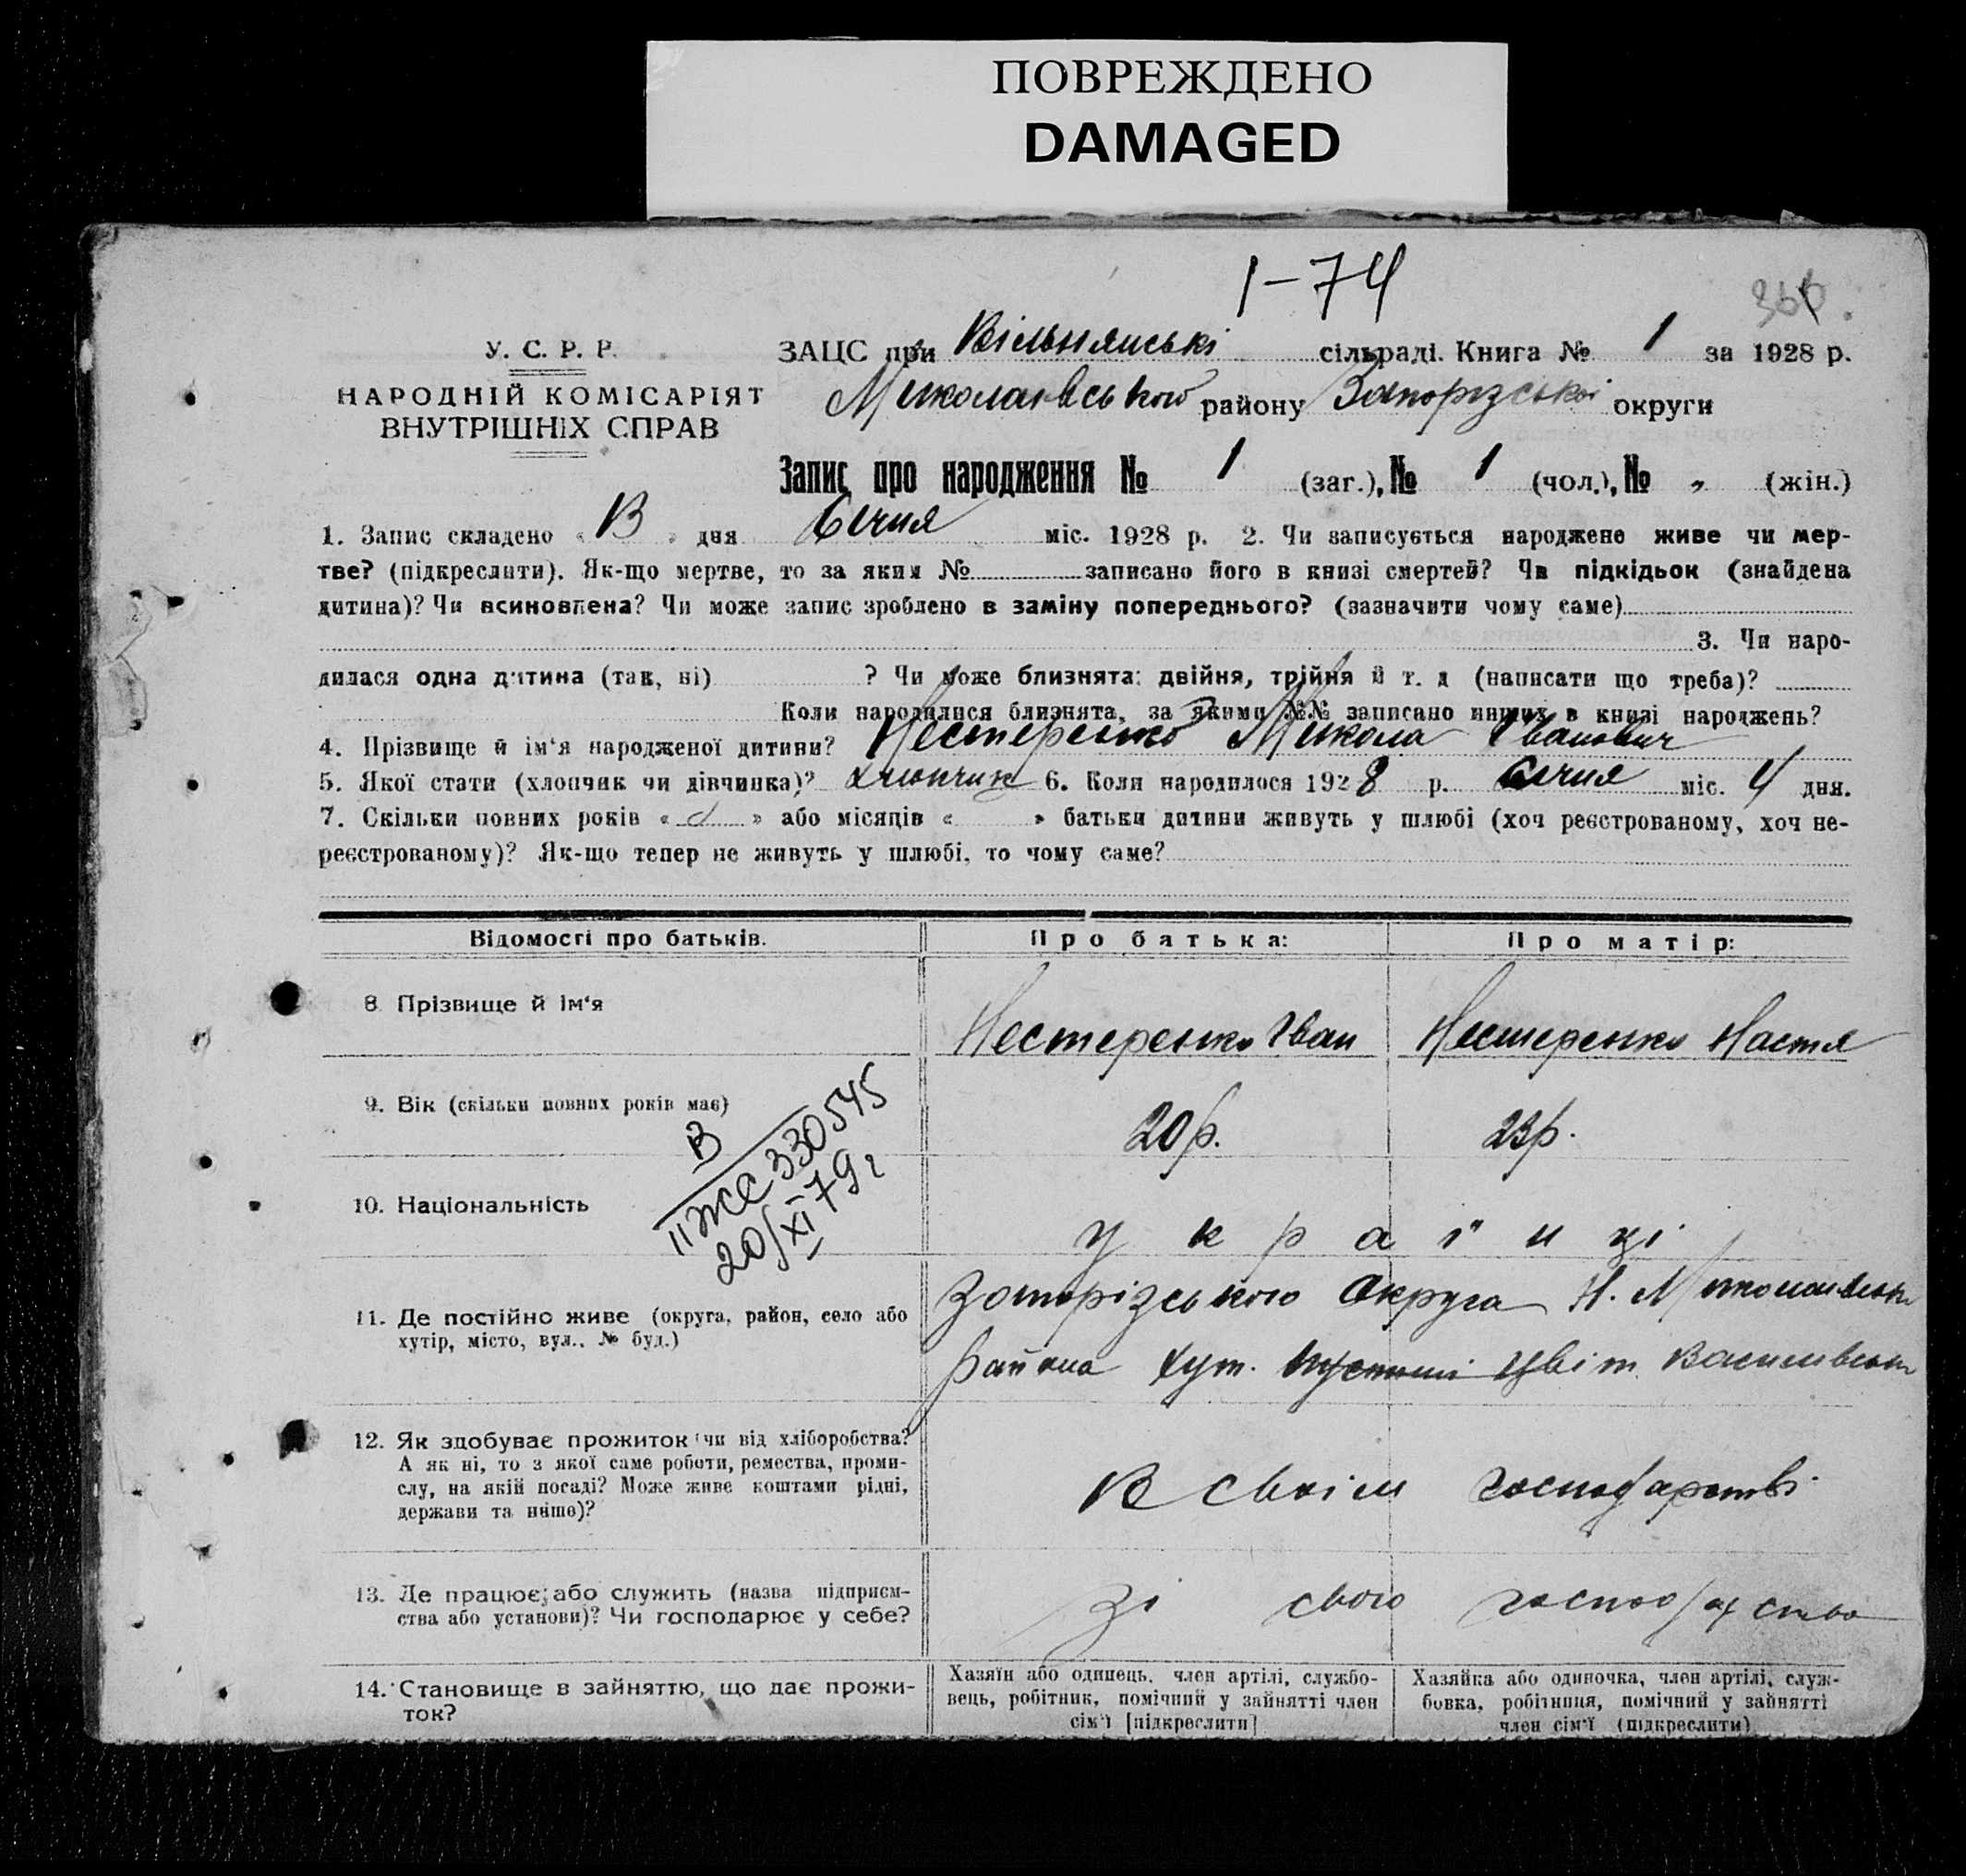 ПОВРЕЖДЕНО
DAMAGED
1-74
У. С. Р. Р.
НАРОДНІЙ КОМІСАРІЯТ
ВНУТРІШНІХ СПРАВ
ЗАЦС при Вільнянські сільраді. Книга № 1 за 1928 р.
Миколаївського району Запорізської округи
Запис про народження № 1 (заг.), № 1 (чол.), № „ (жін.)
1. Запис складено « » дня Січня міс. 1928 р. 2. Чи записується народжене живе чи мер-
тве? (підкреслити). Як-що мертве, то за яким № записано його в книзі смертей? Чи підкідьок (знайдена
дитина)? Чи всиновлена? Чи може запис зроблено в заміну попереднього? (зазначити чому саме)
3. Чи наро-
дилася одна дитина (так, ні) ? Чи може близнята: двійня, трійня й т. д (написати що треба)?
Коли народилися близнята, за якими №№ записано инших в книзі народжень?
4. Прізвище й ім'я народженої дитини? Нестеренко Микола Іванович
5. Якої стати (хлопчик чи дівчинка)? хлопчик 6. Коли народилося 1928 р. Січня міс. 4 дня.
7. Скільки повних років « » або місяців « » батьки дитини живуть у шлюбі (хоч реєстрованому, хоч не-
реєстрованому)? Як-що тепер не живуть у шлюбі, то чому саме?
Відомості про батьків.
Про батька:
Про матір:
8. Прізвище й ім'я
Нестеренко Іван
Нестеренко Настя
9. Вік (скільки повних років має)
20 р.
23 р.
В
II ЖС 330545
20/XI 79 г
10. Національність
українці
11. Де постійно живе (округа, район, село або
хутір, місто, вул.. № буд.)
Запорізського Округа Н. Миколаївськ
Района хут. Цвіт Василівськ
12. Як здобуває прожиток чи від хліборобства?
А як ні, то з якої саме роботи, ремества, проми-
слу, на якій посаді? Може живе коштами рідні,
держави та инше)?
В своїм господарстві
13. Де працює; або служить (назва підприєм-
ства або установи)? Чи господарює у себе?
Зі свого господарства
14. Становище в зайняттю, що дає прожи-
ток?
Хазяїн або одинець, член артілі, службо-
вець, робітник, помічний у зайнятті член
сім'ї [підкреслити]
Хазяйка або одиночка, член артілі, служ-
бовка, робітниця, помічний у зайнятті
член сім'ї (підкреслити)